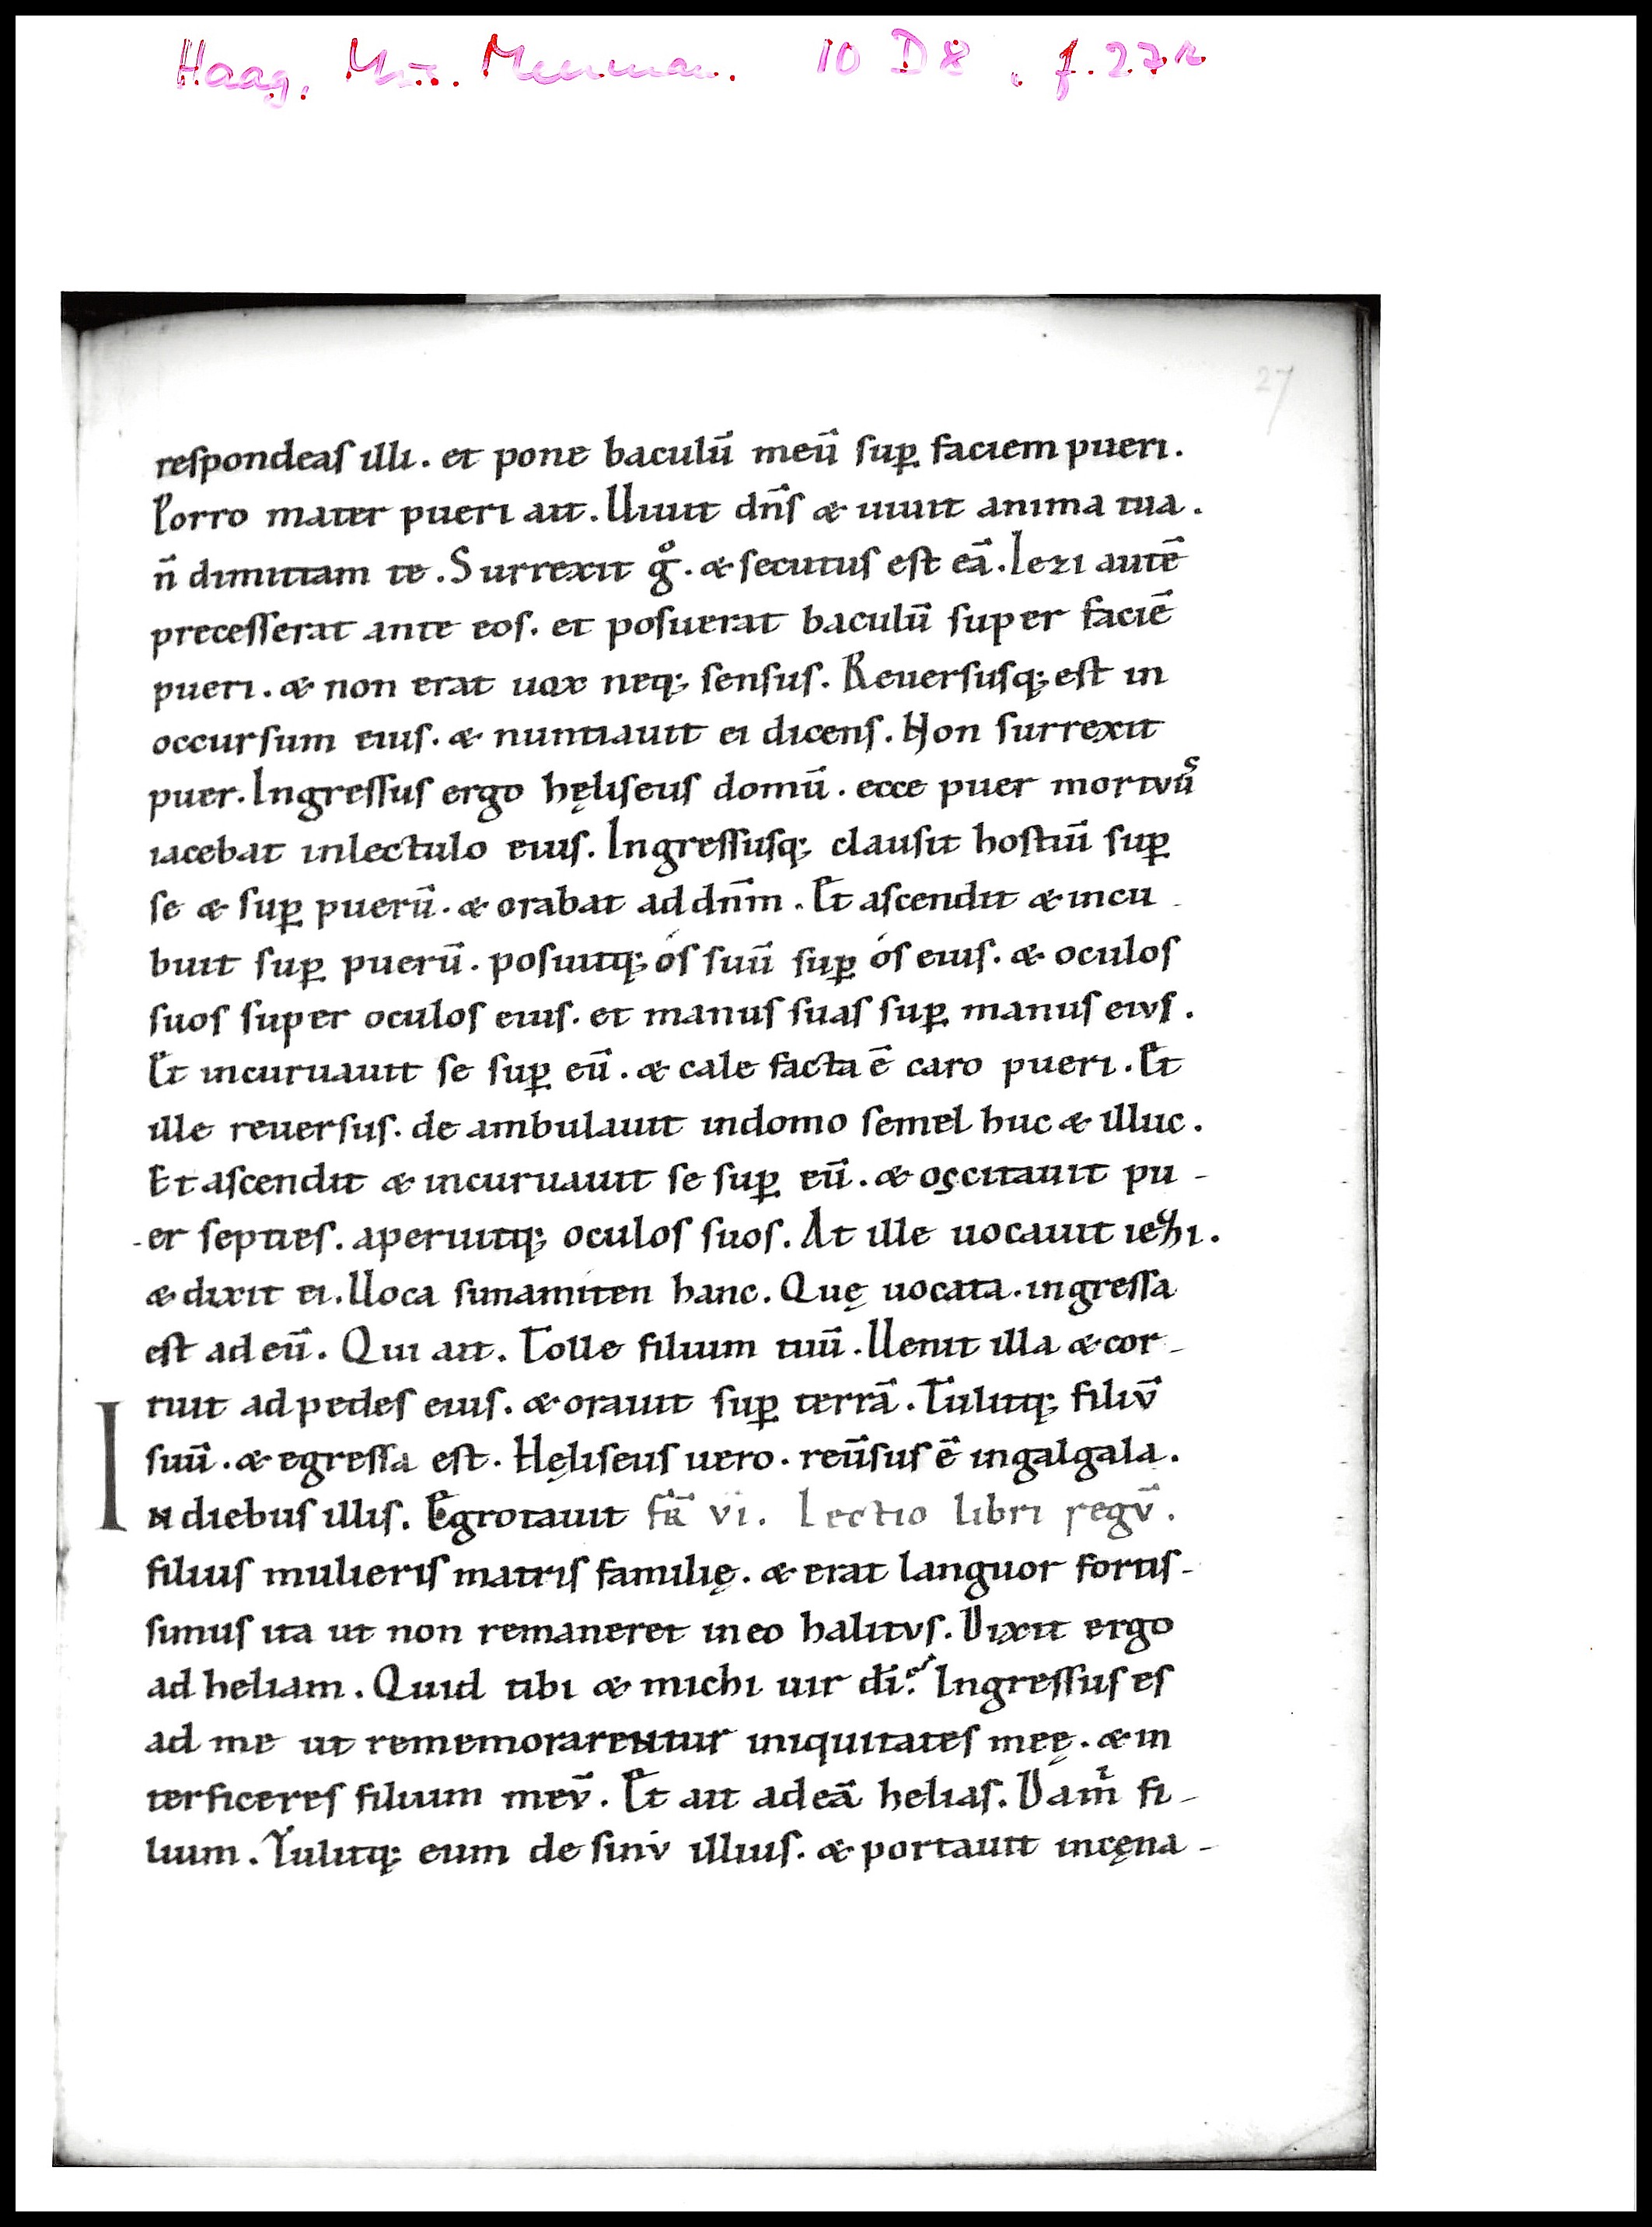 Haag, Mus. Meerman. 10 D 8, f. 27r
27
respondeaſ illi. et pone baculū meū ſuꝑ faciem pueri.
Porro mater pueri ait. Uiuit dn̄ſ & uiuit anima tua.
n̄ dimittam te. Surrexit gͦ. & ſecutuſ eſt eā. Iezi autē
preceſſerat ante eoſ. et poſuerat baculū ſuper faciē
pueri. & non erat uox neq; ſenſuſ. Reuerſuſq; eſt in
occurſum eiuſ. & nuntiauit ei dicenſ. Non ſurrexit
puer. Ingreſſuſ ergo hęliſeuſ domū. ecce puer mortuuſ
iacebat inlectulo eiuſ. Ingreſſuſq; clauſit hoſtiū ſuꝑ
ſe & ſuꝑ puerū. & orabat ad dn̄m. Et aſcendit & incu
buit ſuꝑ puerū. poſuitq; óſ ſuū ſuꝑ óſ eiuſ. & oculoſ
ſuoſ ſuper oculoſ eiuſ. et manuſ ſuaſ ſuꝑ manuſ eivſ.
Et incuruauit ſe ſuꝑ eū. & cale facta ē caro pueri. Et
ille reuerſuſ. de ambulauit indomo ſemel huc & illuc.
Et aſcendit & incuruauit ſe ſuꝑ eū. & oscitauit pu-
-er ſeptieſ. aperuitq; oculoſ ſuoſ. At ille uocauit iezi.
& dixit ei. Uoca ſunamiten hanc. Quę uocata. ingreſſa
eſt ad eū. Qui ait. Tolle filium tuū. Uenit illa & cor-
ruit ad pedeſ eiuſ. & orauit ſuꝑ terrā. Tulitq; filiv̄
ſuū. & egreſſa eſt. Hęliſeuſ uero. reūſuſ ē ingalgala.
IN diebuſ illiſ. Egrotauit fr̄ vi. Lectio libri regv̄.
filiuſ mulieriſ matriſ familię. & erat languor fortiſ-
ſimuſ ita ut non remaneret in eo halitvſ. Dixit ergo
ad heliam. Quid tibi & michi uir dī? Ingreſſuſ eſ
ad me ut rememorareNtur iniquitateſ meę. & in
terficereſ filium mev̄. Et ait ad eā heliaſ. Da m̄ fi-
lium. Tulitq; eum de ſinv illiuſ. & portauit incęna-